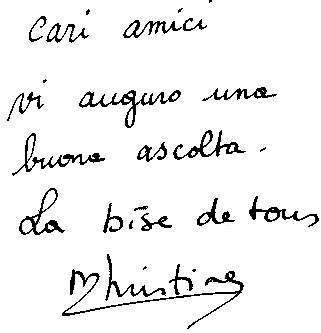 Cari amici
vi auguro una
buona ascolta.
La bise de tous
Christine